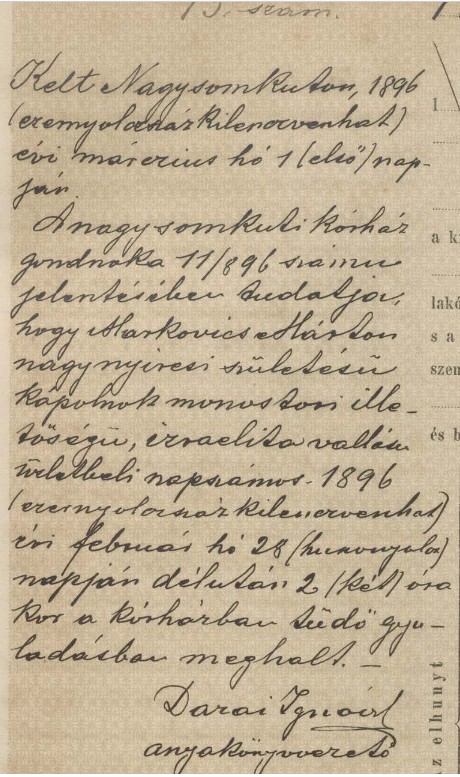 13. szám.
Kelt Nagysomkuton, 1896
(ezernyolcszázkilencvenhat)
évi márczius hó 1 (első) nap-
ján.
A nagysomkuti kórház
gondnoka 11/896 számu
jelentésében tudatja,
hogy Markovics Márton
nagynyiresi születésü
kápolnok monostori ille-
tőségü, izraelita vallásu
üzletbeli napszámos 1896
(ezernyolcszázkilencvenhat)
évi február hó 28 (huszonnyolcz)
napján délután 2 (két) óra
kor a kórházban tüdő gyu-
ladásban meghalt. –
Darai Ignácz
anyakönyvvezető
1
a k
lakó
s a
szem
és b
az elhunyt